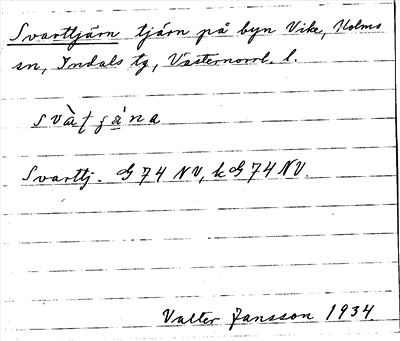 Svarttjärn tjärn på byn Vike, Holms
sn, Indals tg, Västernorrl. l.
Svarttj. G 74 NV, k G 74 NV.
Valter Jansson 1934